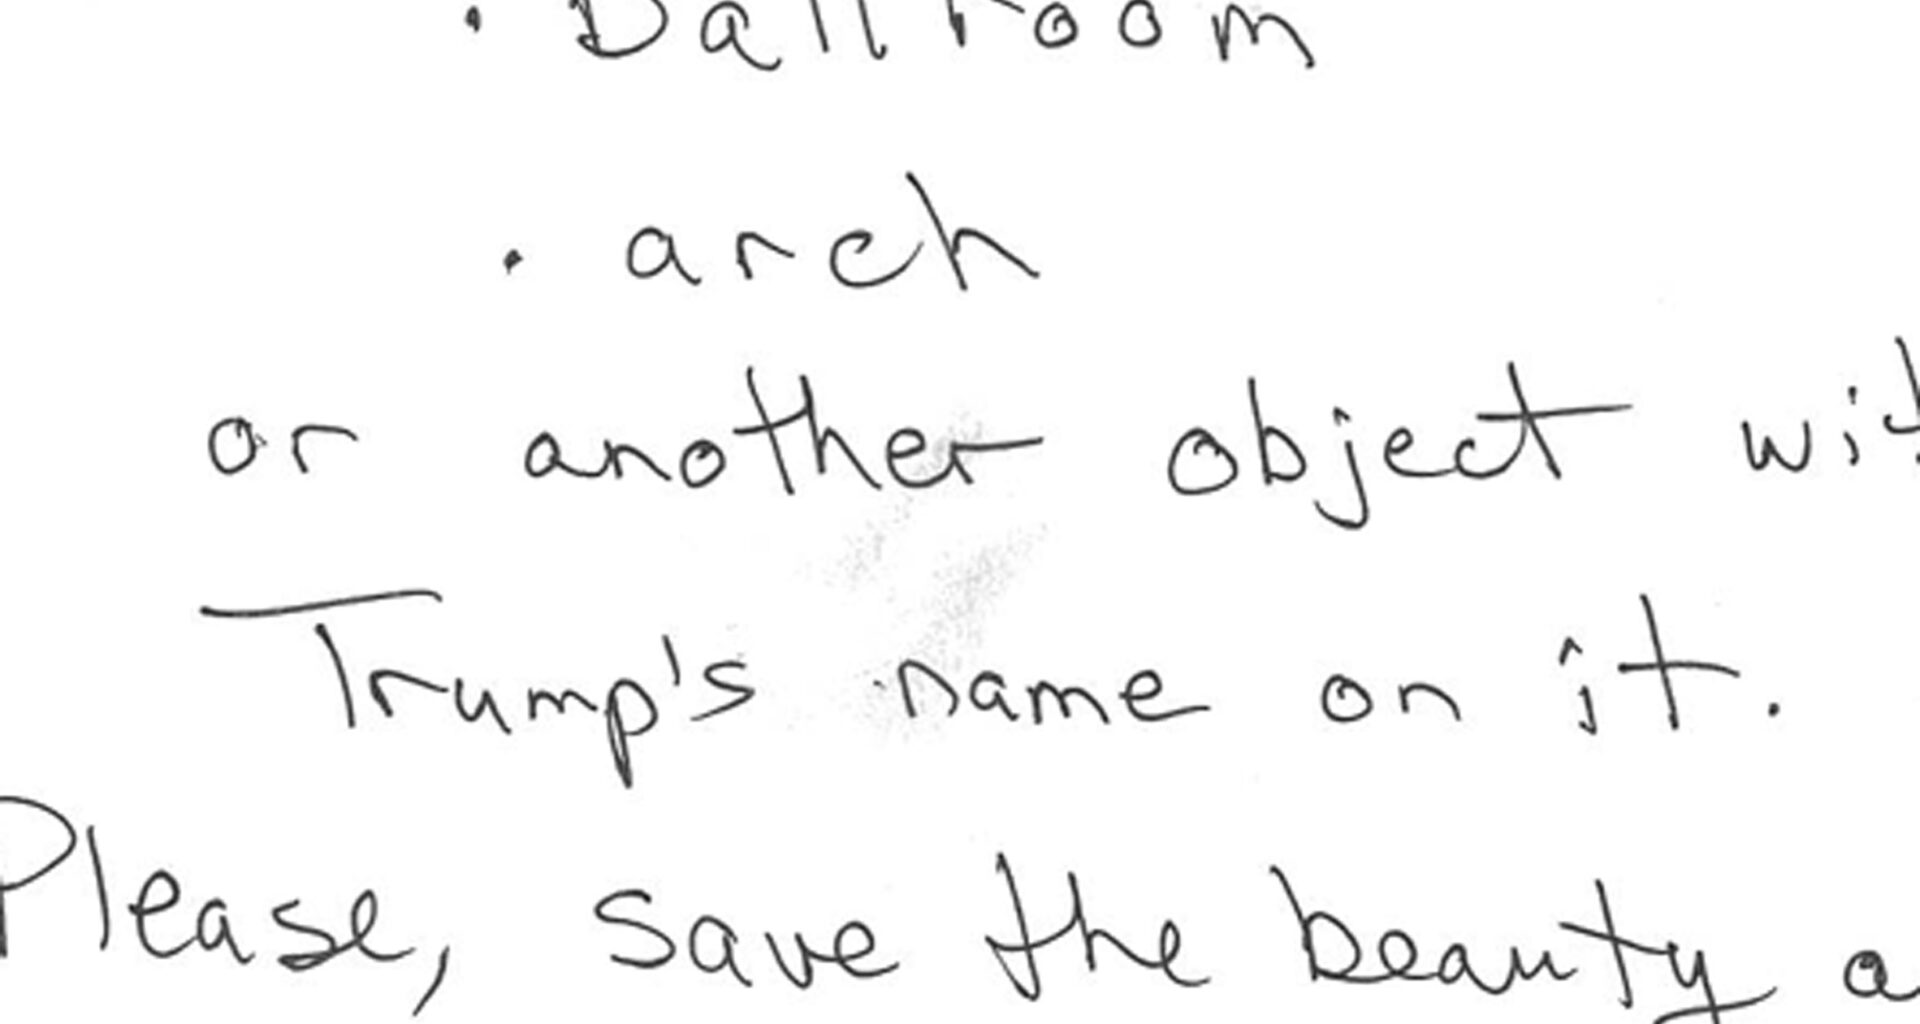 · Ballroom
· arch
or another object wit
Trump's name on it.
Please, save the beauty a